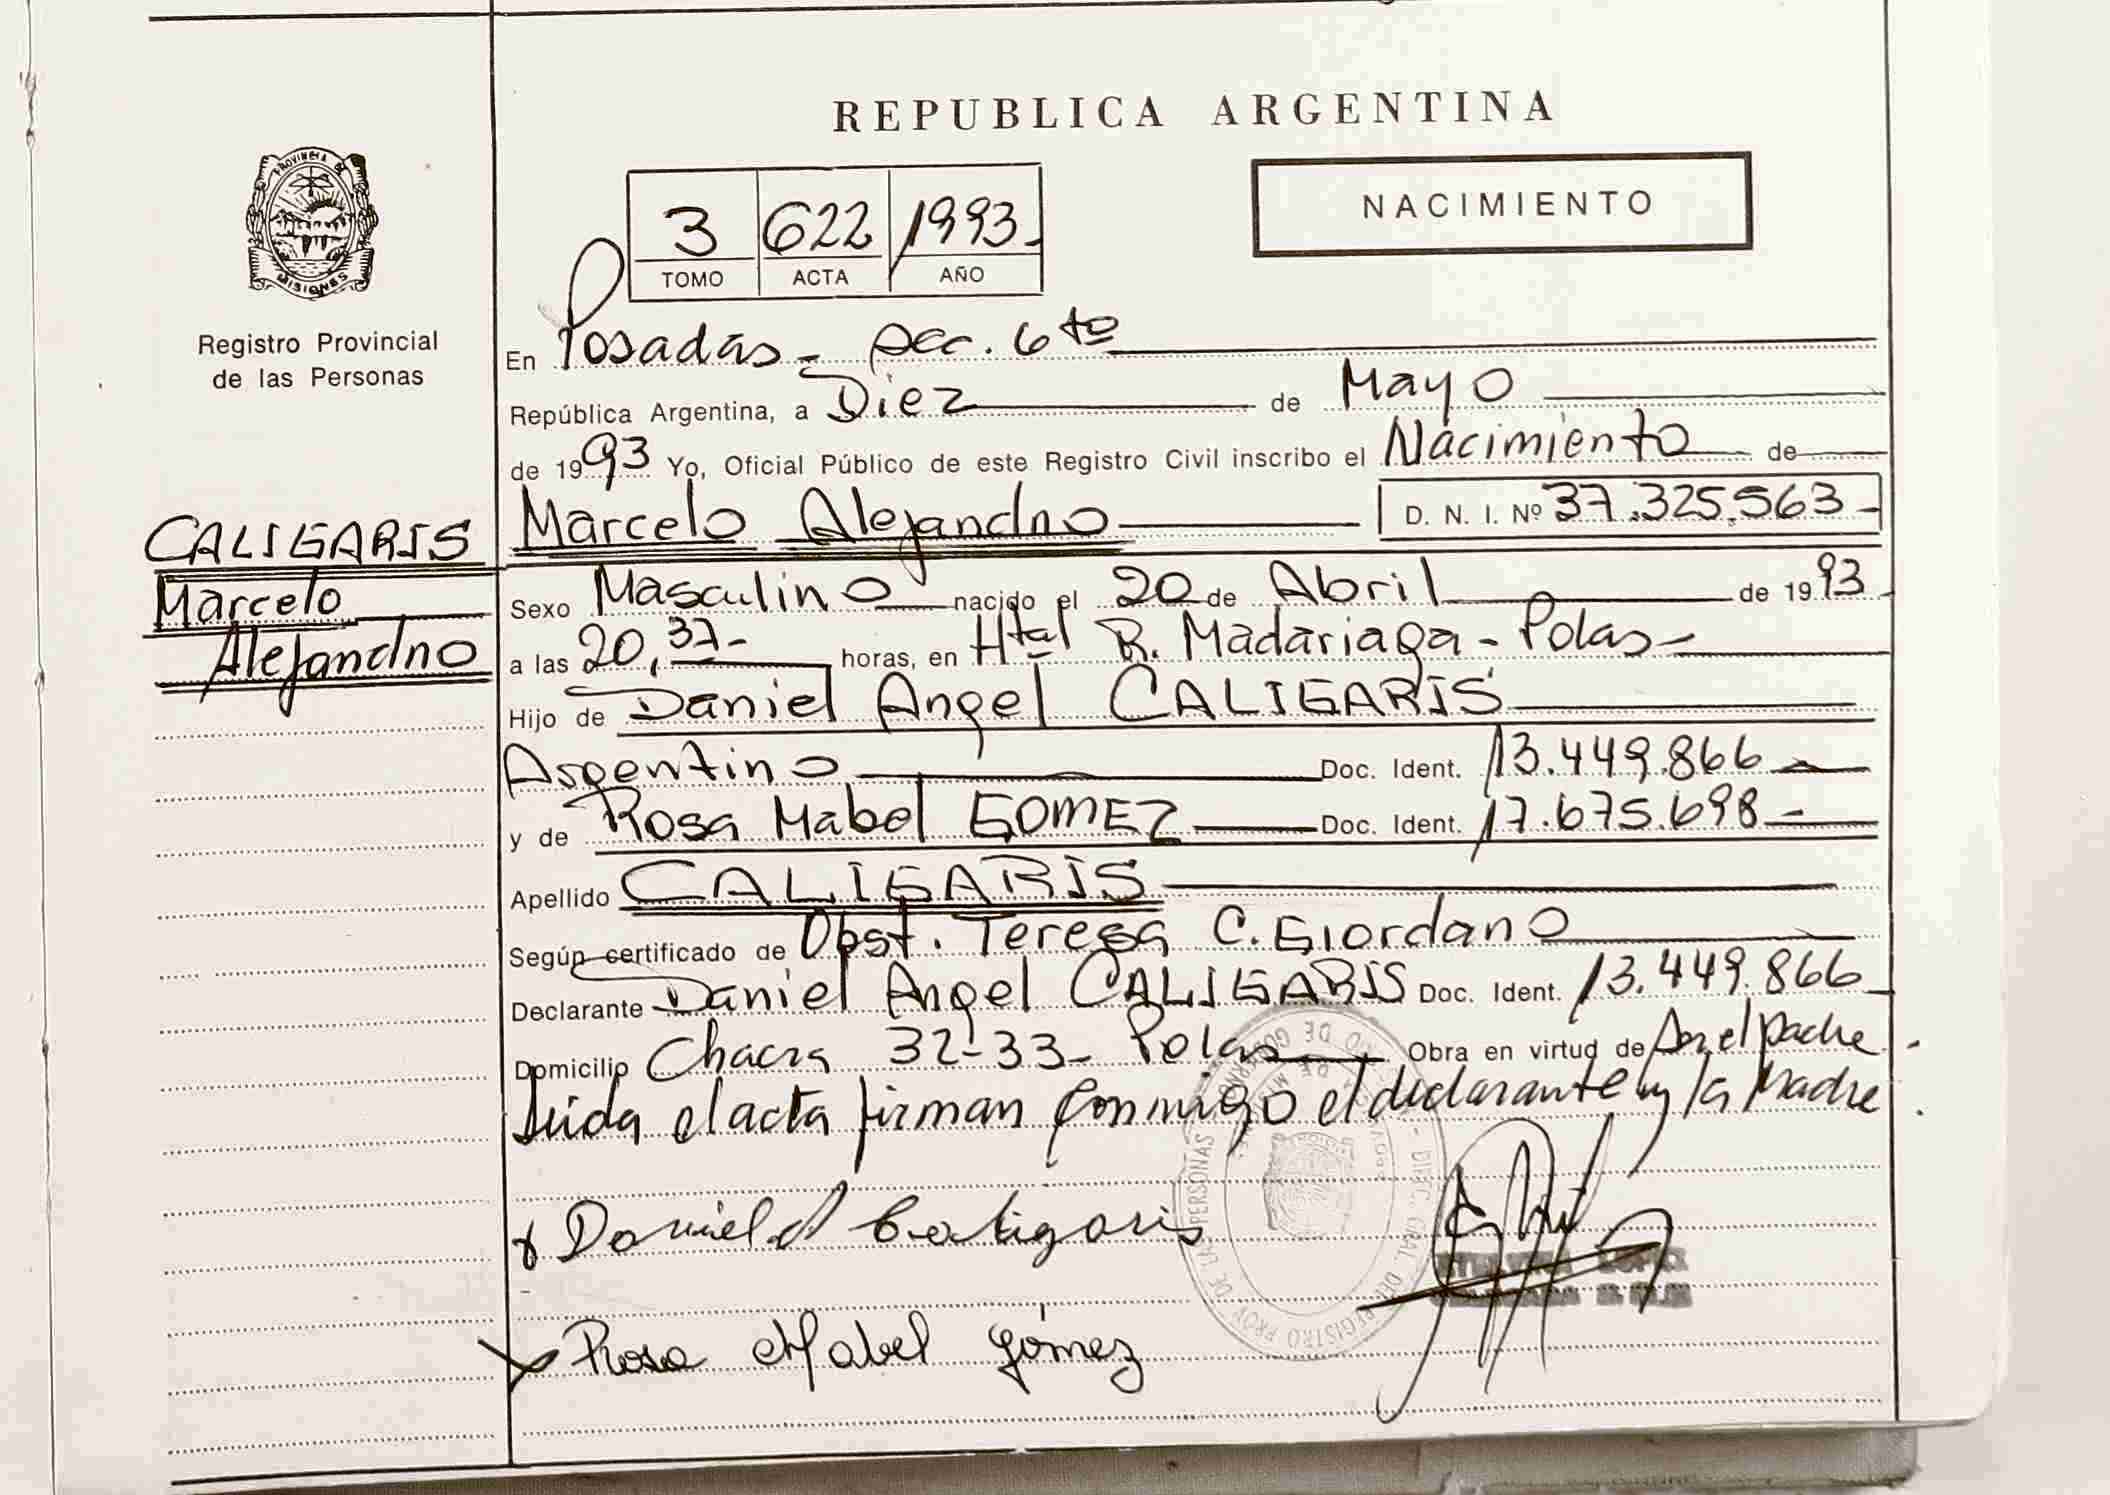 REPUBLICA ARGENTINA
NACIMIENTO
3 622 1993-
TOMO ACTA AÑO
PROVINCIA DE
MISIONES
Registro Provincial
de las Personas
CALIGARIS
Marcelo
Alejandro
En Posadas - Sec. 6ta
República Argentina, a Diez de Mayo
de 1993 Yo, Oficial Público de este Registro Civil inscribo el Nacimiento de
Marcelo Alejandro D. N. I. Nº 37.325.563-
Sexo Masculino nacido el 20 de Abril de 1993
a las 20,37- horas, en Htal R. Madariaga - Pdas-
Hijo de Daniel Angel CALIGARIS
Argentino Doc. Ident. 13.449.866
y de Rosa Mabel GOMEZ Doc. Ident. 17.675.698-
Apellido CALIGARIS
Según certificado de Obst. Teresa C. Giordano
Declarante Daniel Angel CALIGARIS Doc. Ident. 13.449.866
Domicilio Chacra 32-33- Pdas Obra en virtud de Ser el padre.
Leida el acta firman conmigo el declarante y la Madre.
Daniel A Caligaris
Rosa Mabel Gómez
DIREC. GRAL. DEL REGISTRO PROV. DE LAS PERSONAS